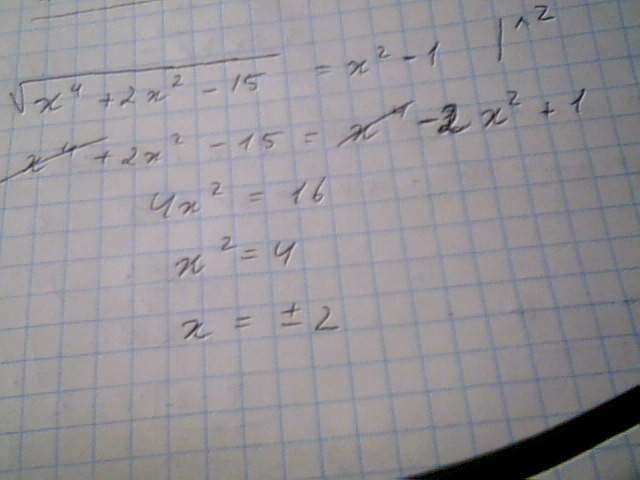 √(x⁴ + 2x² - 15) = x² - 1 |^2
x⁴ + 2x² - 15 = x⁴ - 2x² + 1
4x² = 16
x² = 4
x = ± 2